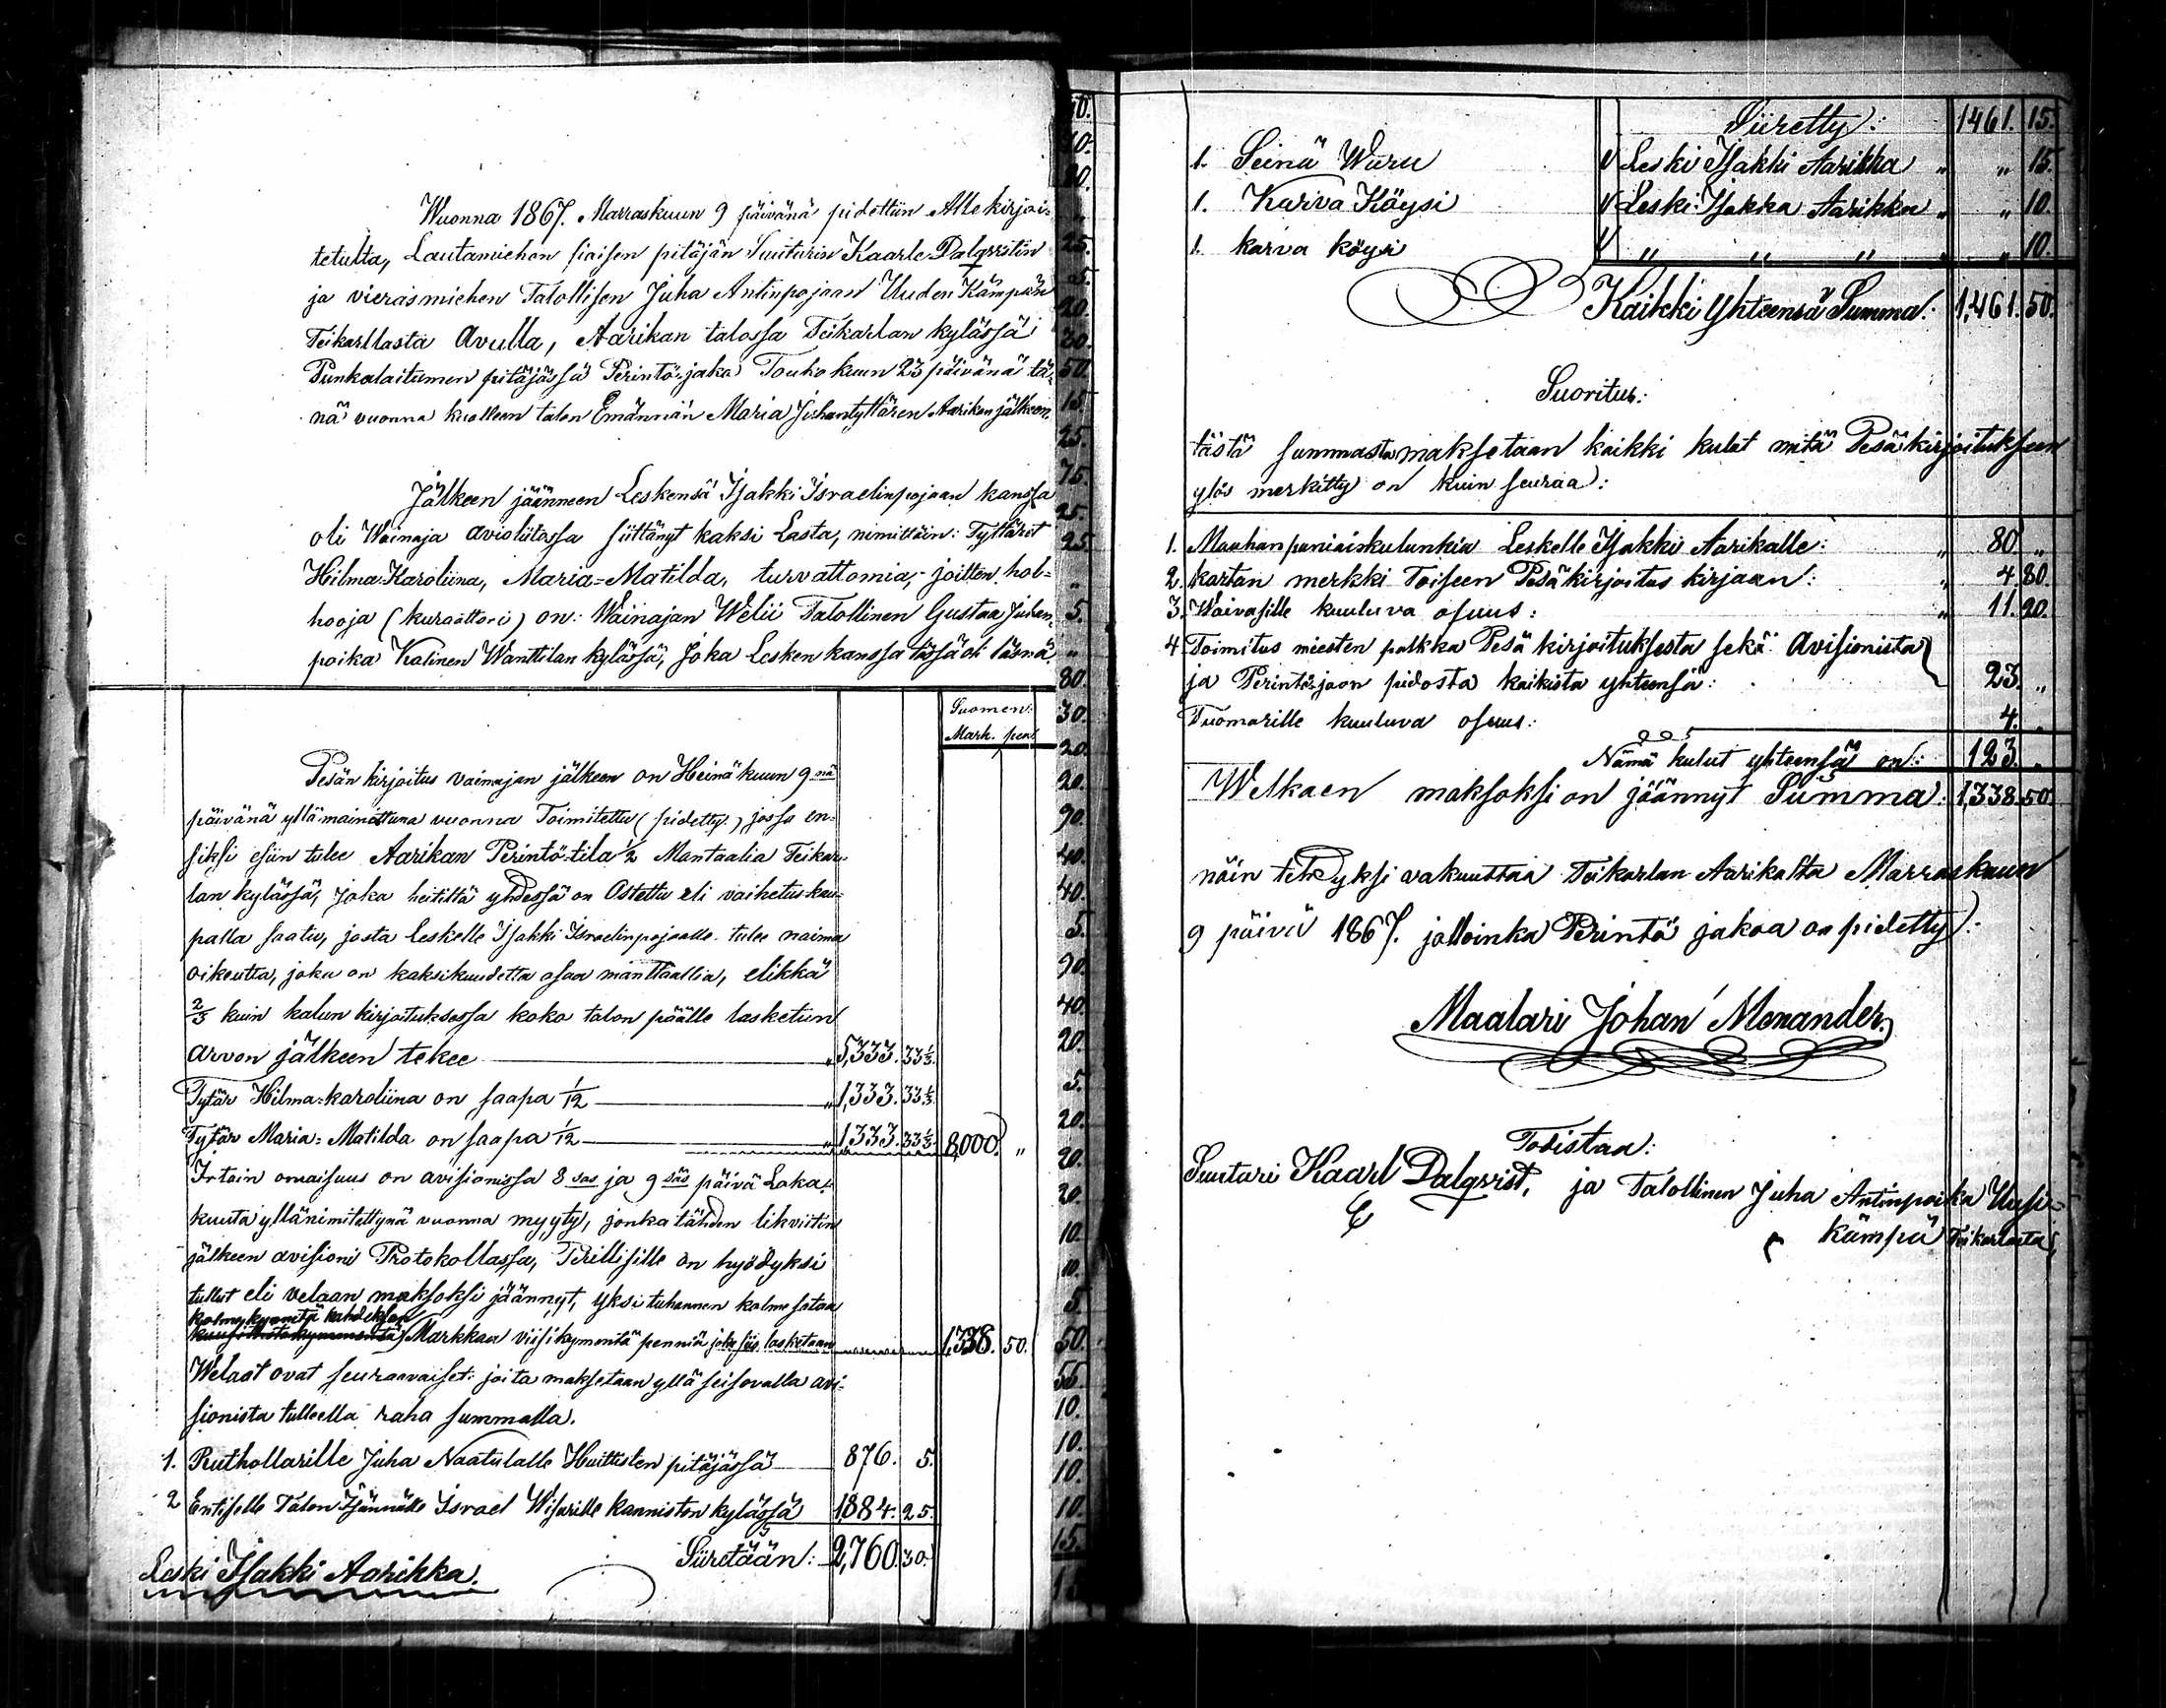 Wuonna 1867. Marraskuun 9 päivänä pidettiin Allekirjoi-
tetulta, Lautamiehen siaisen pitäjän Suuturin Kaarle Dalqvistin
ja vierasmiehen Talollisen Juha Antinpojaan Uuden Kämpän
Teikarllasta Avulla, Aarikan talossa Teikarlan kylässä
Punkalaitumen pitäjässä Perintö-jako Touko kuun 23 päivänä tä-
nä vuonna kuolleen talon Emännän Maria Juhantyttären Aarikan jälkeen.
Jälkeen jäänneen Leskensä Isakki Israelinpojaan kanssa
oli Wainaja avioliitossa siittänyt kaksi Lasta, nimittäin: Tyttäret
Hilma-Karoliina, Maria=Matilda, turvattomia,- joitten hol-
hooja (kuraattori) on: Wainajan Welii Talollinen Gustaa Juhan-
poika Kalinen Wanttilan kylässä, Joka Lesken kanssa tässä oli läsnä.
Suomen:
Mark. pen:
Pesän kirjoitus vainajan jälkeen on Heinäkuun 9 nä
päivänä yllämainittuna vuonna Toimitettu (pidetty.) jossa en-
siksi esiin tulee Aarikan Perintö-tila 1/2 Mantaalia Teikar-
lan kylässä, Joka heitiltä yhdessä on Ostettu eli vaihetus-kau-
palla saatu, josta Leskelle Isakki Israelinpojaalle tulee naima
oikeutta, joka on kaksikuudetta osaa manttaallia, elikkä
2/3 kuin kalun kirjoituksessa koko talon päälle lasketun
arvon jälkeen tekee " 5,333. 33 1/3.
Tytär Hilma=karoliina on saapa 1/12 " 1,333. 33 1/3.
Tytär Maria=Matilda on saapa 1/12 " 1,333. 33 1/3. 8,000. "
Irtain omaisuus on avisionissa 8 sas ja 9 säs päivä Loka-
kuuta yllänimitettynä vuonna myyty, jonka tähden likviitin
jälkeen avisioni Protokollassa, Perillisille on hyödyksi
tullut eli velaan maksoksi jäännyt, yksi tuhannen kolme sataa
kolmekymentä kahdeksan
Markkaa viisikymentä penniä joka siis lasketaan 1,338. 50.
Welaat ovat seuraavaiset: joita maksetaan yllä seisovalla avi-
sionista tulleella raha summalla.
1. Ruthollarille Juha Naatulalle Huittisten pitäjässä 876. 5.
2 Entiselle Talon Isännälle Israel Wisurille kanniston kylässä 1884. 25.
Siiretään: 2,760. 30.
Leski Isakki Aarikka.
Siiretty: 1461. 15.
1. Seinä Wuru V Leski Isakki Aarikka " " 15.
1. Karva Köysi V Leski Isakka Aarikka " " 10.
1. karva köysi V " " " " " 10.
Kaikki Yhteensä Summa: 1,461. 50.
Suoritus:
tästä summasta maksetaan kaikki kulut mitä Pesäkirjoitukseen
ylös merkitty on kuin seuraa:
1. Maahan paniaiskulunkia Leskelle Isakki Aarikalle: " 80. "
2. kartan merkki Toiseen Pesäkirjoitus kirjaan: " 4. 80.
3. Waivasille kuuluva osuus: " 11. 20.
4 Toimitus miesten palkka Pesä kirjoituksesta sekä Avisionista
ja Perintö-jaon pidosta kaikista yhteensä: 23. "
Tuomarille kuuluva osuus: 4. "
Nämä kulut yhteensä on: 123. "
Welkaen maksoksi on jäännyt Summa: 1,338. 50.
näin tehdyksi vakuuttaa Teikarlan Aarikalta Marraskuun
9 päivä 1867. jolloinka Perintö jakoa on pidetty.
Maalari Johan Menander.
Todistaa:
Suutari Kaarl Dalqvist, ja Talollinen Juha Antinpoika Uusi=
kämpä Teikarlasta,